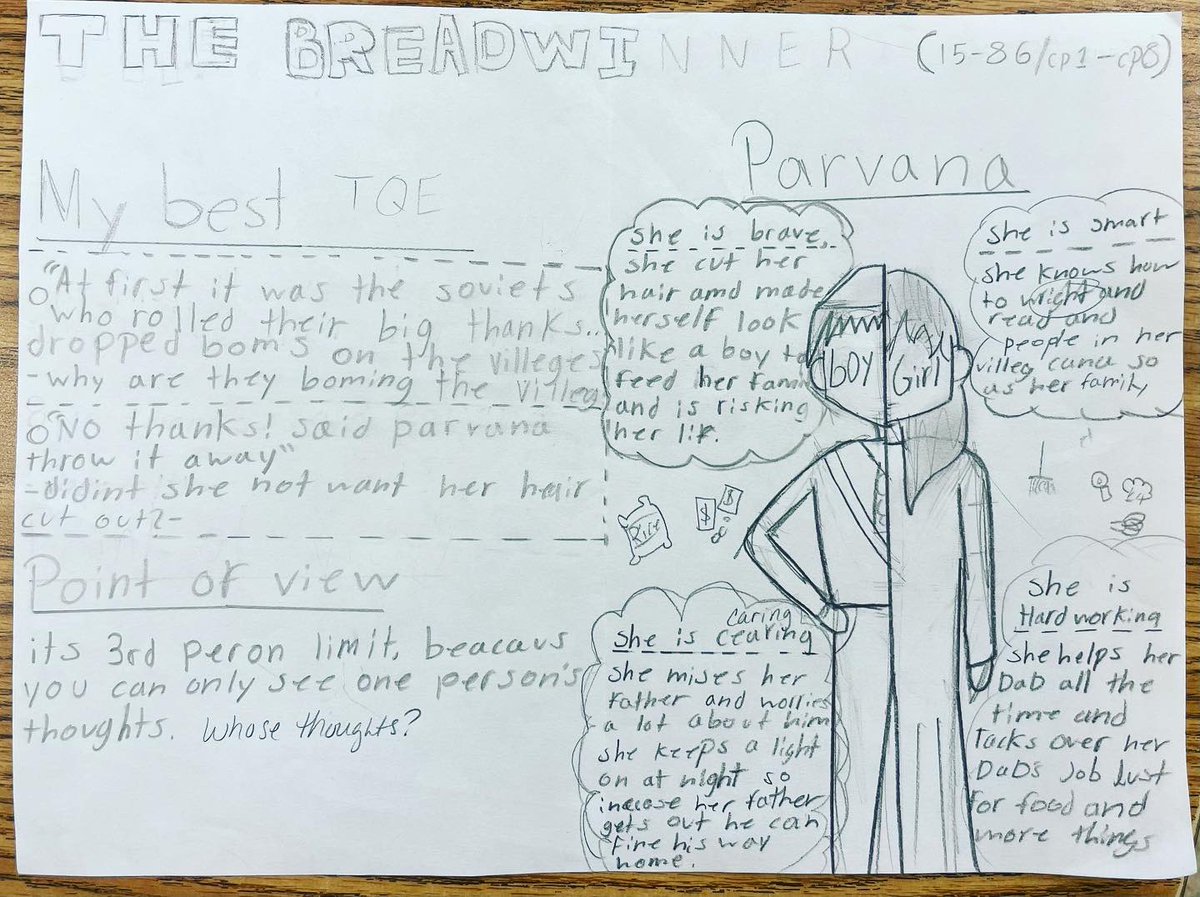 THE BREADWINNER (15-86/cp1-cp8)
My best TQE
"At first it was the soviets
who rolled their big thanks...
dropped boms on the villeges
-why are they boming the villeg
"No thanks! said parvana
throw it away"
-didint she not want her heir
cut out?-
Point of view
its 3rd peron limit, beacaus
you can only see one person's
thoughts. Whose thoughts?
Parvana
she is brave,
she cut her
hair amd made
herself look
like a boy to
feed her fami
and is risking
her lif.
she is smart
she knows how
to wright and
read and
people in her
villeg cana so
as her family
boy
Girl
Rice
$ $
caring
she is cearing
she mises her
father and worries
a lot about him
she keeps a light
on at night so
incase her father
gets out he can
fine his way
home.
she is
Hard working
she helps her
DaD all the
time and
Tacks over her
DaD's Job Lust
for food and
more things